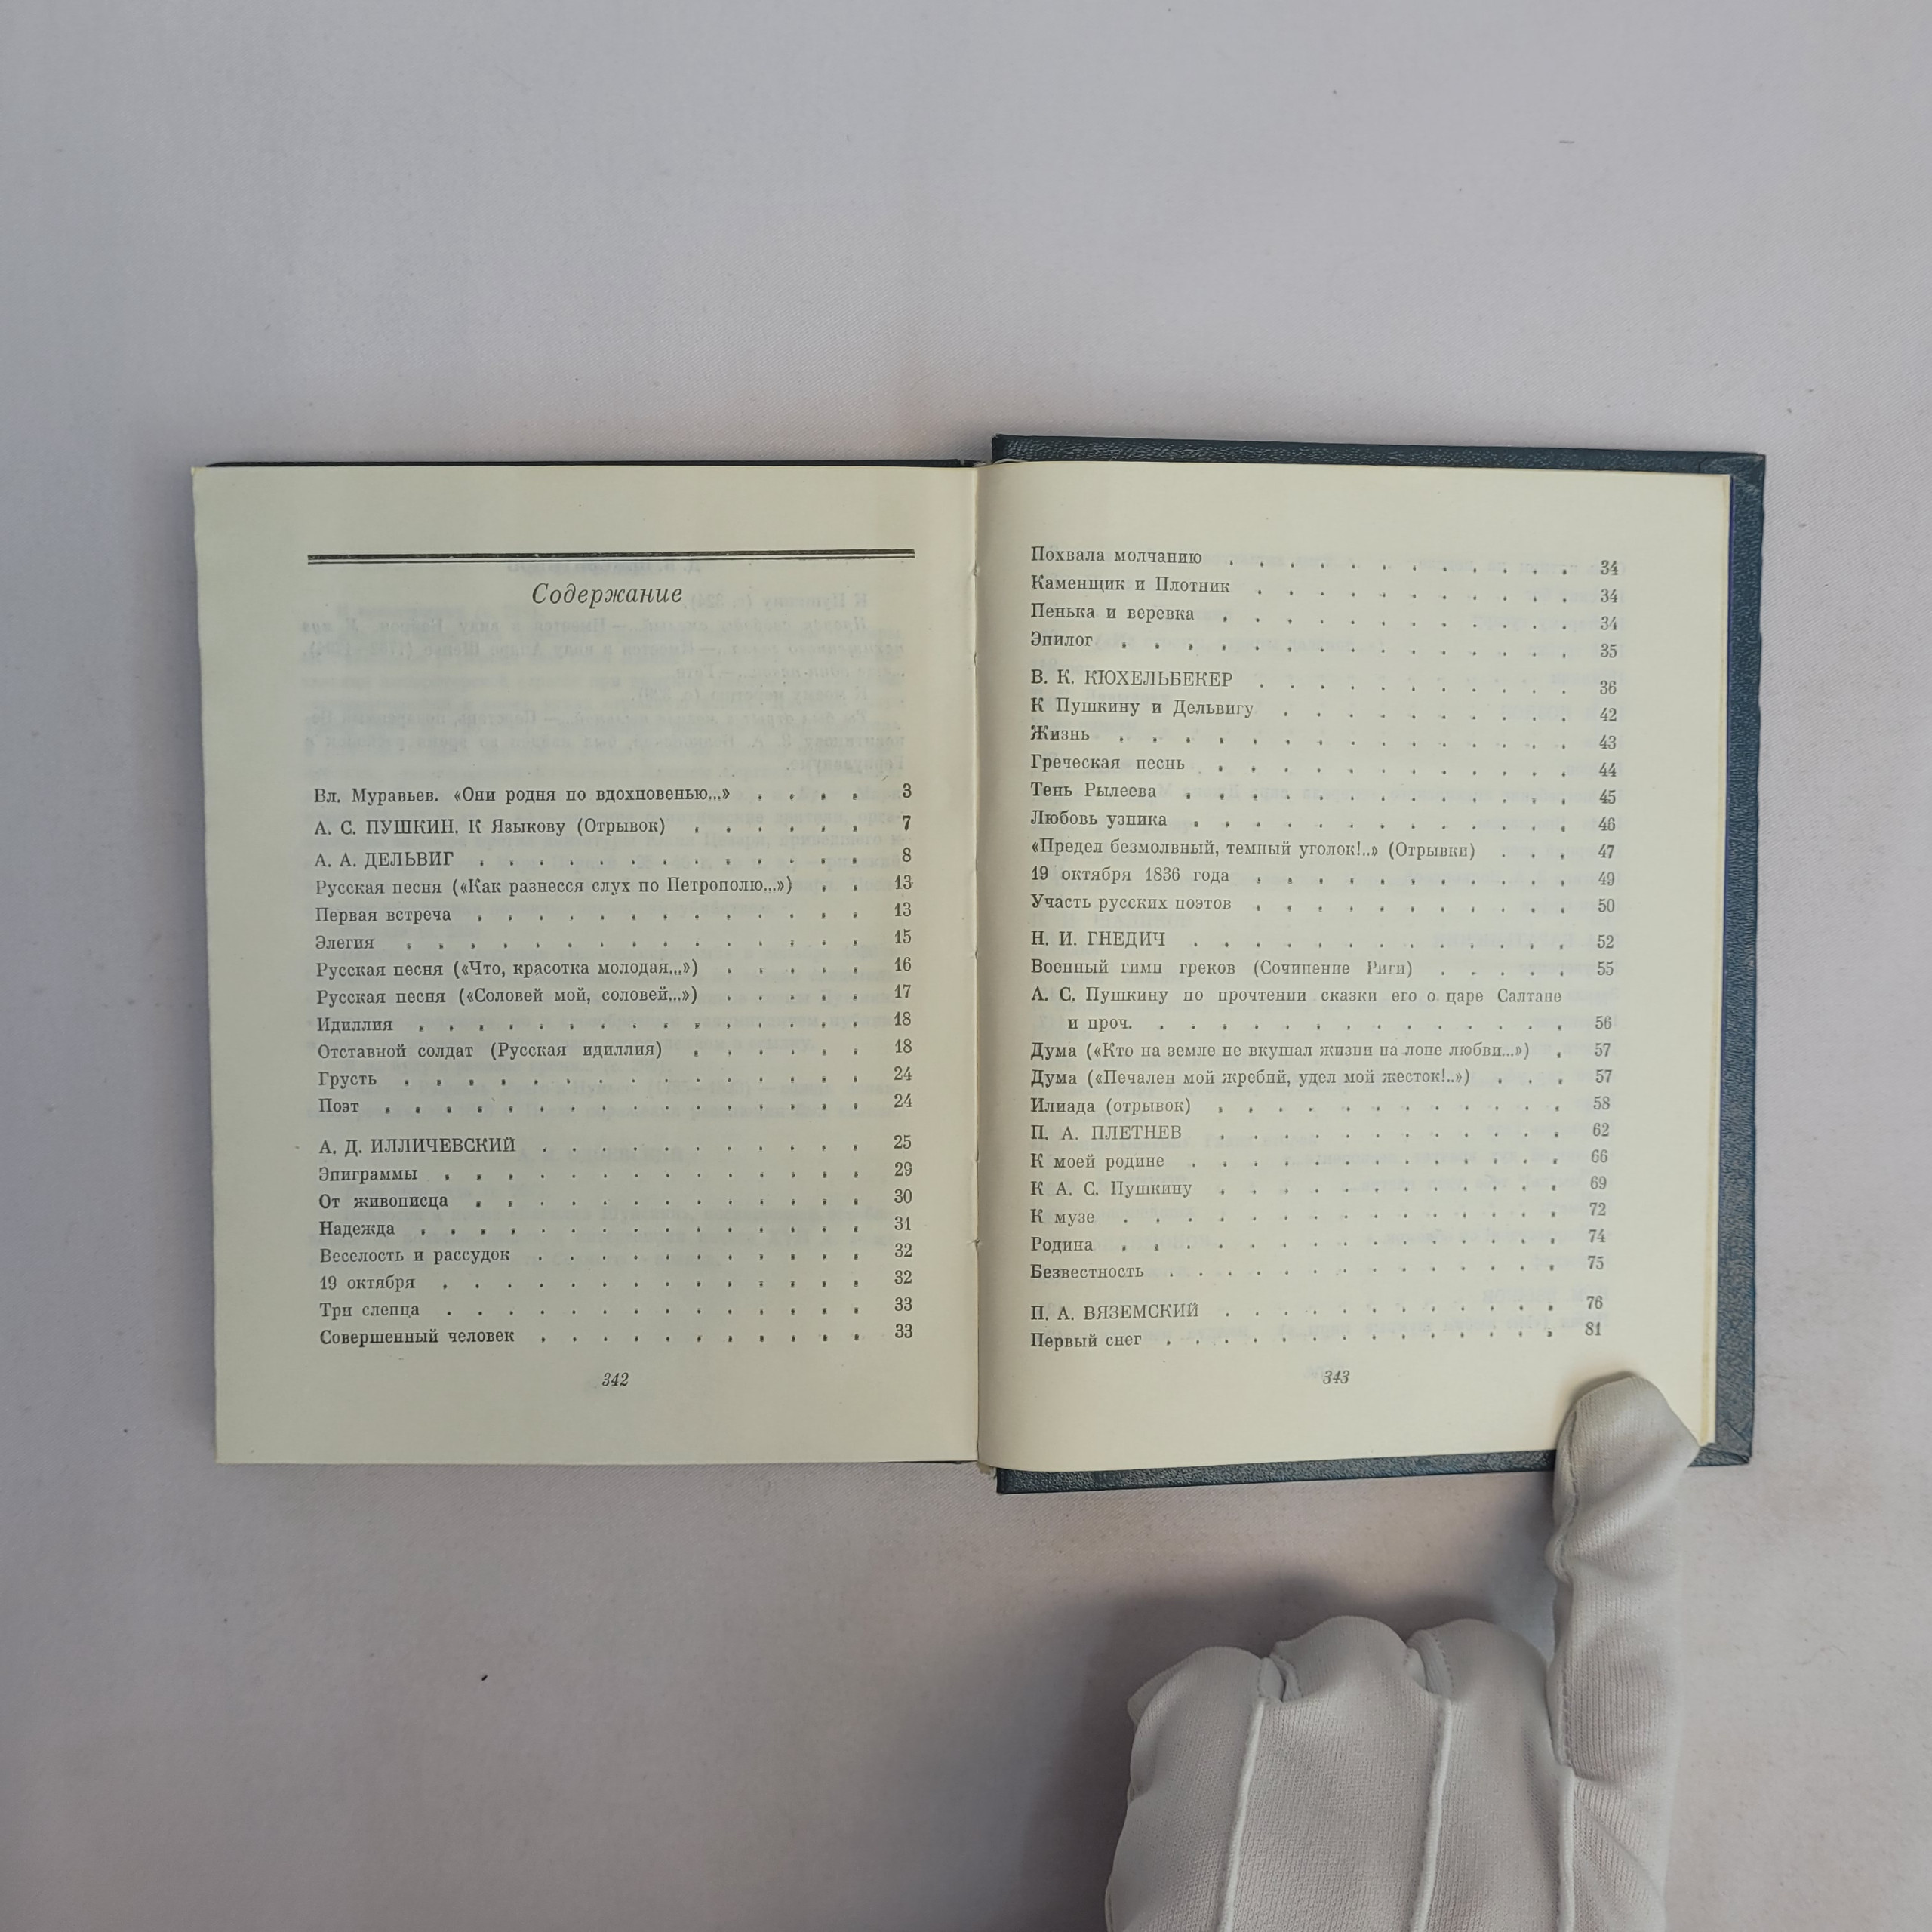 Содержание
Вл. Муравьев. «Они родня по вдохновенью...» . . . . 3
А. С. ПУШКИН. К Языкову (Отрывок) . . . . . . 7
А. А. ДЕЛЬВИГ . . . . . . . . . . . . . 8
Русская песня («Как разнесся слух по Петрополю...») . . 13
Первая встреча . . . . . . . . . . . . . 13
Элегия . . . . . . . . . . . . . . . 15
Русская песня («Что, красотка молодая...») . . . . . 16
Русская песня («Соловей мой, соловей...») . . . . . 17
Идиллия . . . . . . . . . . . . . . . 18
Отставной солдат (Русская идиллия) . . . . . . 18
Грусть . . . . . . . . . . . . . . . 24
Поэт . . . . . . . . . . . . . . . . 24
А. Д. ИЛЛИЧЕВСКИЙ . . . . . . . . . . . 25
Эпиграммы . . . . . . . . . . . . . . 29
От живописца . . . . . . . . . . . . . 30
Надежда . . . . . . . . . . . . . . . 31
Веселость и рассудок . . . . . . . . . . . 32
19 октября . . . . . . . . . . . . . . 32
Три слепца . . . . . . . . . . . . . . 33
Совершенный человек . . . . . . . . . . . 33
342
Похвала молчанию . . . . . . . . . . . . 34
Каменщик и Плотник . . . . . . . . . . . 34
Пенька и веревка . . . . . . . . . . . . 34
Эпилог . . . . . . . . . . . . . . . 35
В. К. КЮХЕЛЬБЕКЕР . . . . . . . . . . . 36
К Пушкину и Дельвигу . . . . . . . . . . 42
Жизнь . . . . . . . . . . . . . . . 43
Греческая песнь . . . . . . . . . . . . 44
Тень Рылеева . . . . . . . . . . . . . 45
Любовь узника . . . . . . . . . . . . . 46
«Предел безмолвный, темный уголок!..» (Отрывки) . . . 47
19 октября 1836 года . . . . . . . . . . . 49
Участь русских поэтов . . . . . . . . . . . 50
Н. И. ГНЕДИЧ . . . . . . . . . . . . . 52
Военный гимн греков (Сочинение Риги) . . . . . 55
А. С. Пушкину по прочтении сказки его о царе Салтане
и проч. . . . . . . . . . . . . . . 56
Дума («Кто на земле не вкушал жизни на лоне любви...») . 57
Дума («Печален мой жребий, удел мой жесток!..») . . . 57
Илиада (отрывок) . . . . . . . . . . . . 58
П. А. ПЛЕТНЕВ . . . . . . . . . . . . 62
К моей родине . . . . . . . . . . . . . 66
К А. С. Пушкину . . . . . . . . . . . . 69
К музе . . . . . . . . . . . . . . . 72
Родина . . . . . . . . . . . . . . . 74
Безвестность . . . . . . . . . . . . . 75
П. А. ВЯЗЕМСКИЙ . . . . . . . . . . . . 76
Первый снег . . . . . . . . . . . . . . 81
343